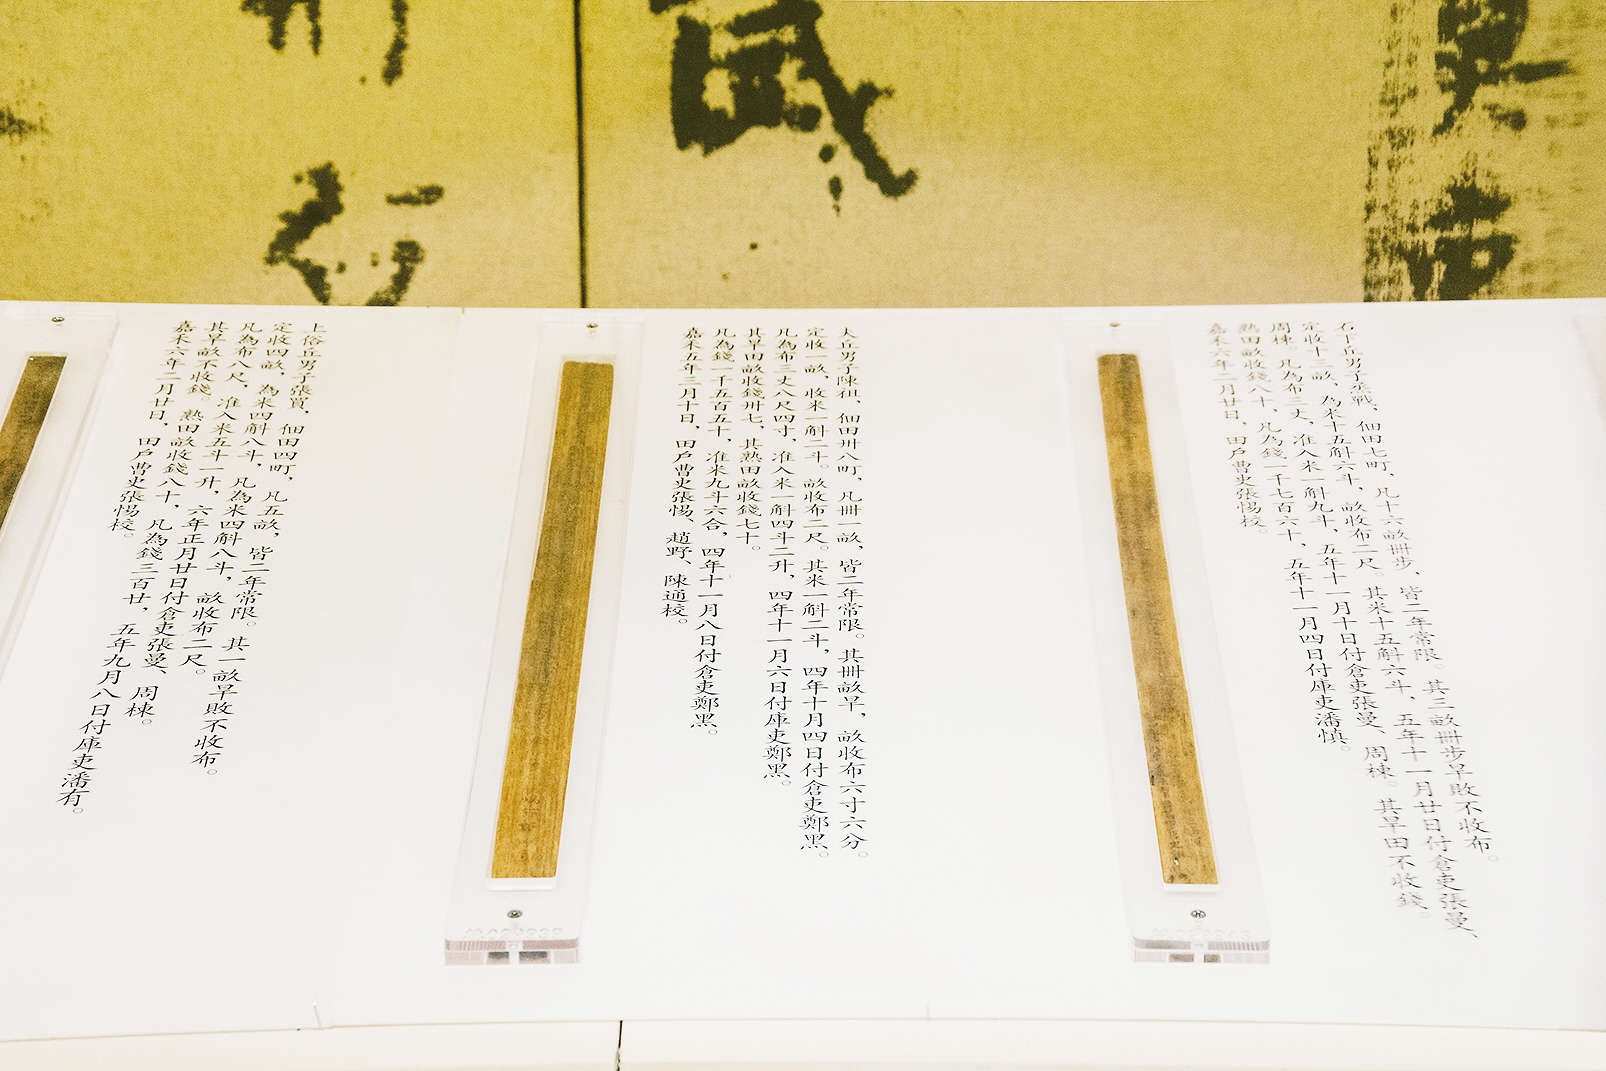 石下丘男子烝戰，佃田七町，凡十六畝卌步，皆二年常限。其三畝卌步旱敗不收布。
定收十三畝，為米十五斛六斗，畝收布二尺。其米十五斛六斗，五年十一月廿日付倉吏張曼、
周棟。凡為布三丈，准入米一斛九斗，五年十一月十日付倉吏張曼、周棟。其旱田不收錢。
熟田畝收錢八十，凡為錢一千七百六十，五年十一月四日付庫吏潘慎。
嘉禾六年二月廿日，田戶曹史張惕校。
夫丘男子陳祖，佃田卅八町，凡卌一畝，皆二年常限。其卌畝旱，畝收布六寸六分。
定收一畝，收米一斛二斗。畝收布二尺。其米一斛二斗，四年十月四日付倉吏鄭黑。
凡為布三丈八尺四寸，准入米一斛四斗二升，四年十一月六日付庫吏鄭黑。
其旱田畝收錢卅七，其熟田畝收錢七十。
凡為錢一千五百五十，准米九斗六合，四年十一月八日付倉吏鄭黑。
嘉禾五年三月十日，田戶曹史張惕、趙野、陳通校。
上俗丘男子張買，佃田四町，凡五畝，皆二年常限。其一畝旱敗不收布。
定收四畝，為米四斛八斗，凡為米四斛八斗，畝收布二尺。
凡為布八尺，准入米五斗一升，六年正月廿日付倉吏張曼、周棟。
其旱畝不收錢。熟田畝收錢八十，凡為錢三百廿，五年九月八日付庫吏潘有。
嘉禾六年二月廿日，田戶曹史張惕校。